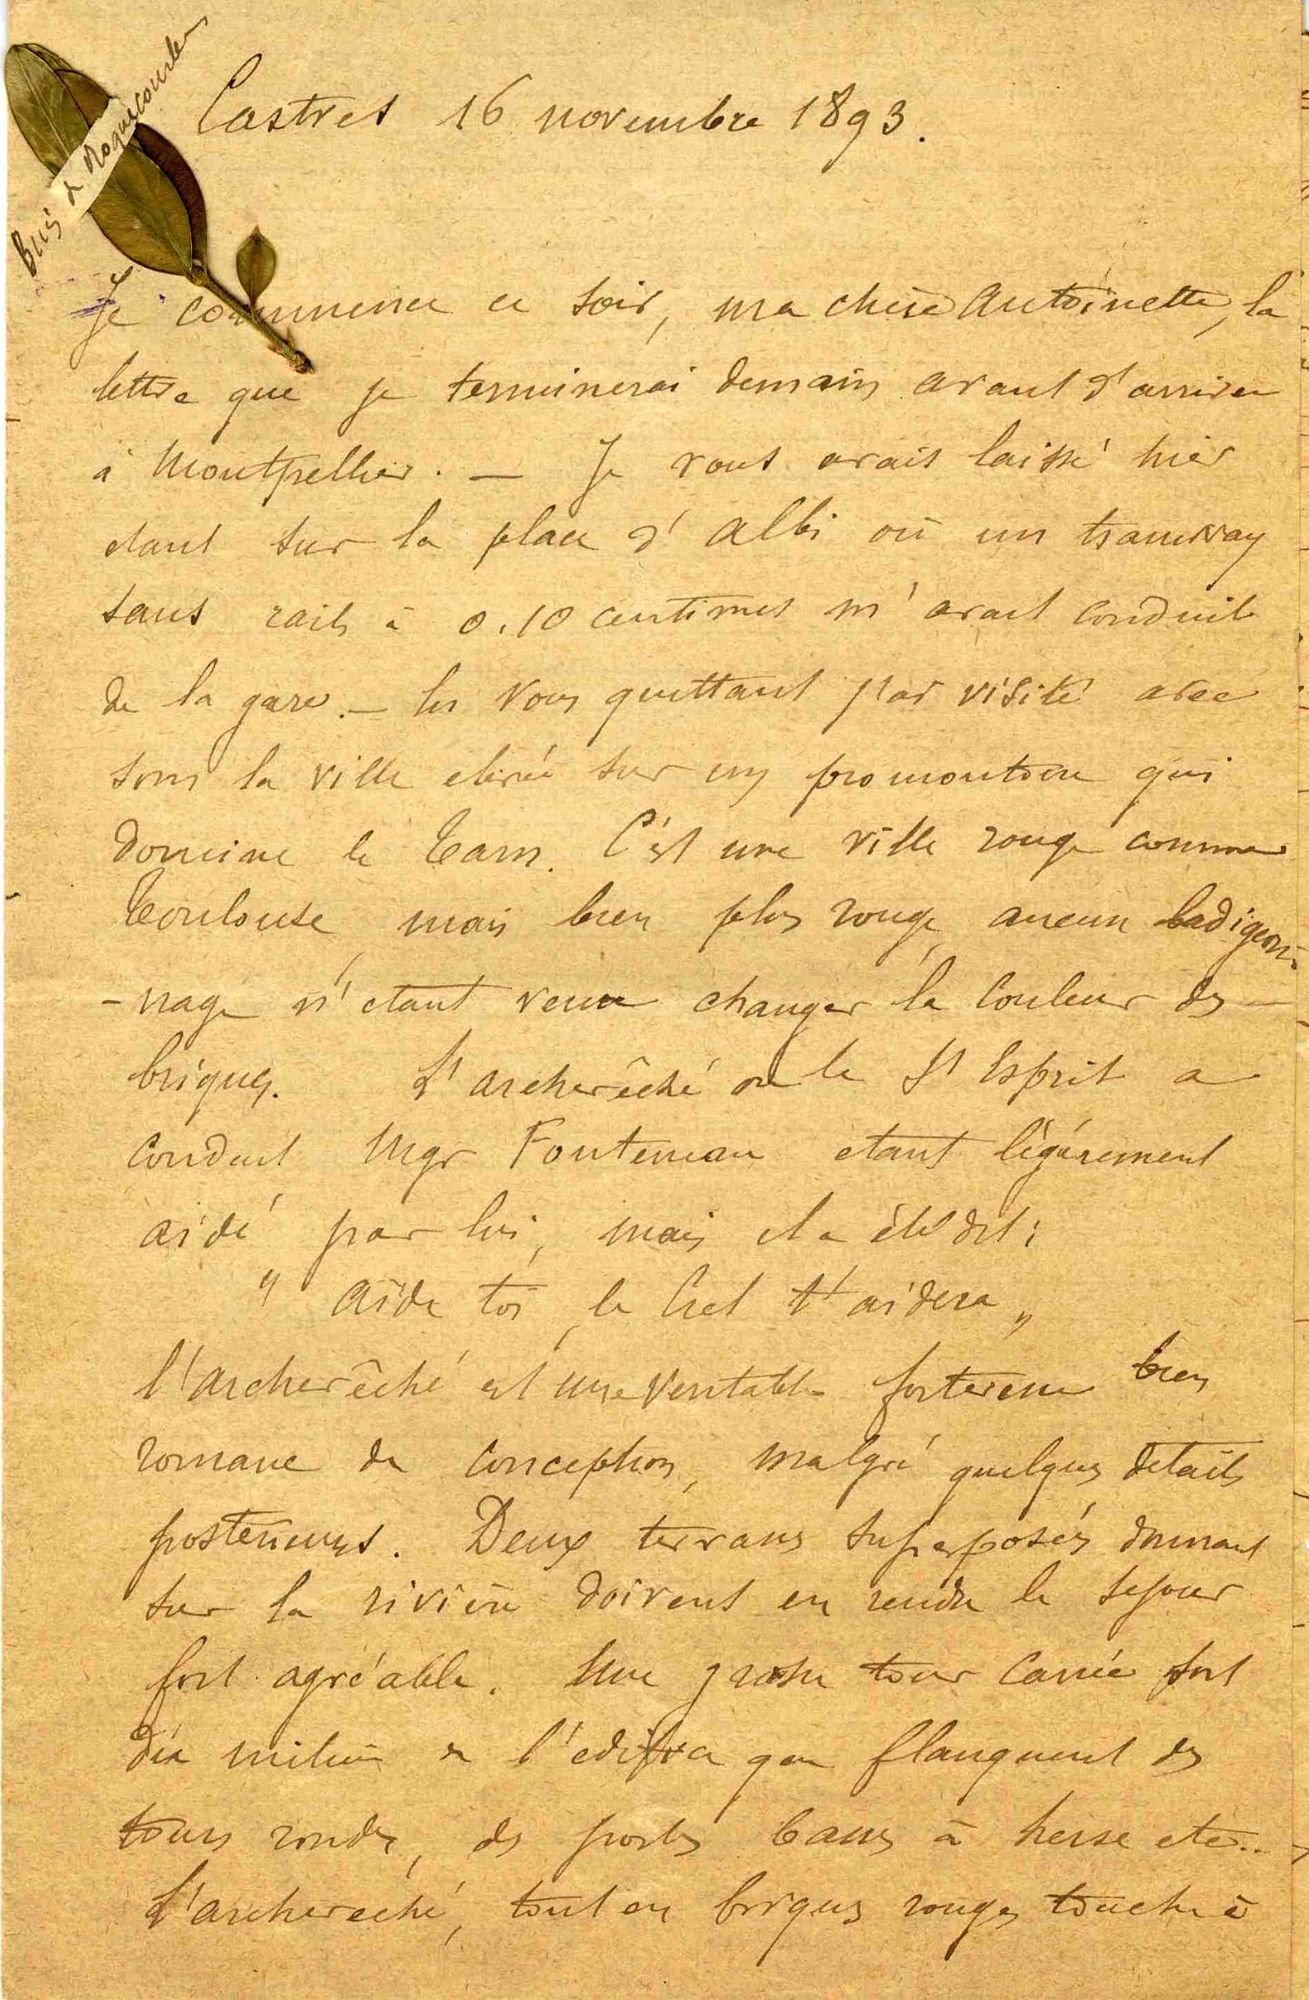 Buis de Roquecourbe
Castres 16 novembre 1893.
Je commence ce soir, ma chère Antoinette, la
lettre que je terminerai demain avant d'arriver
à Montpellier. — Je vous avais laissé hier
étant sur la place d'Albi où un tramway
sans rails à 0.10 centimes m'avait conduit
de la gare. — En vous quittant j'ai visité avec
soin la ville élevée sur un promontoire qui
domine le Tarn. C'est une ville rouge comme
Toulouse, mais bien plus rouge, aucun badigeon-
-nage n'étant venu changer la couleur des
briques. L'archevêché où le St Esprit a
conduit Mgr Fonteneau étant légèrement
aidé par lui, mais il a été dit:
" Aide toi, le Ciel t'aidera „
l'archevêché est une veritable forteresse bien
romane de conception, malgré quelques détails
posterieurs. Deux terrasses superposées donnant
sur la rivière doivent en rendre le sejour
fort agréable. Une grosse tour carrée sort
du milieu de l'edifice que flanquent des
tours rondes, des portes basses à herse etc..
L'archevêché, tout en briques rouges touche à